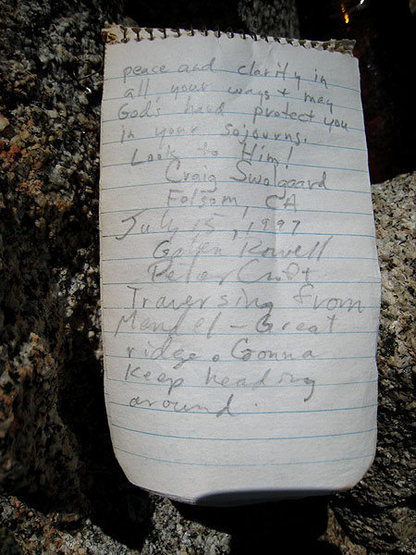 peace and clarity in
all your ways + may
God's hand protect you
in your sojourns.
Look to Him!
Craig Swalgaard
Folsom, CA
July 15, 1997
Galen Rowell
Peter Croft
Traversing from
Mendel - Great
ridge. Gonna
Keep heading
around.